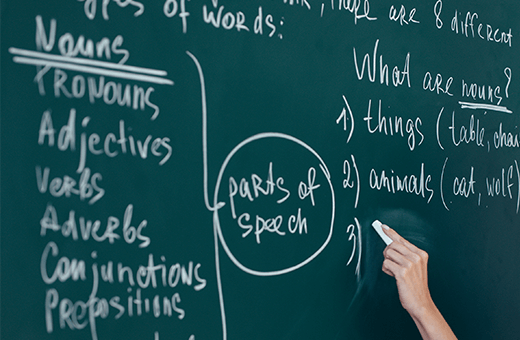 types of words:
Nouns
PRONOUNS
Adjectives
Verbs
Adverbs
Conjunctions
Prepositions
parts of
speech
, There are 8 different
What are nouns?
1) things (table, chai
2) animals (cat, wolf)
3)